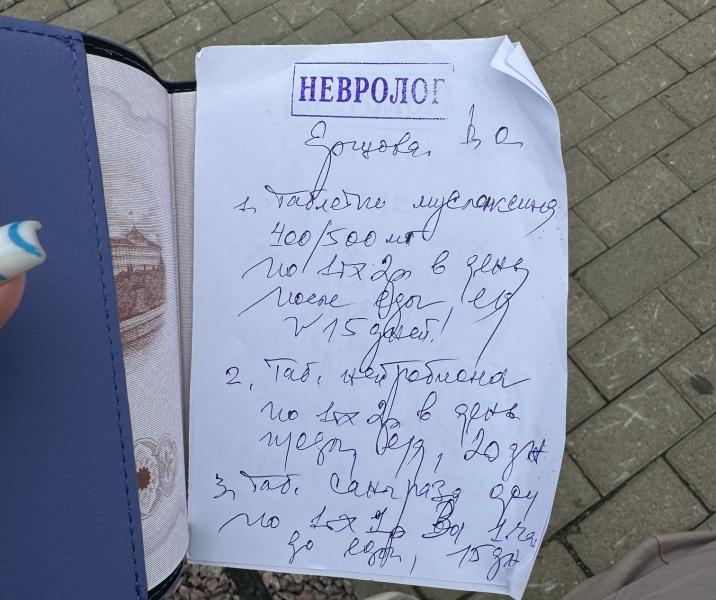 НЕВРОЛОГ
Ершова В О
1. Таблетки
400/500 мг
по 1т х 2р в день
после еды
15 дней!
2. Таб. нейробиона
по 1т х 2р в день
20 дн
3. Таб. санпраз
по 1т х 1р 1 ча
до еды, 15 дн